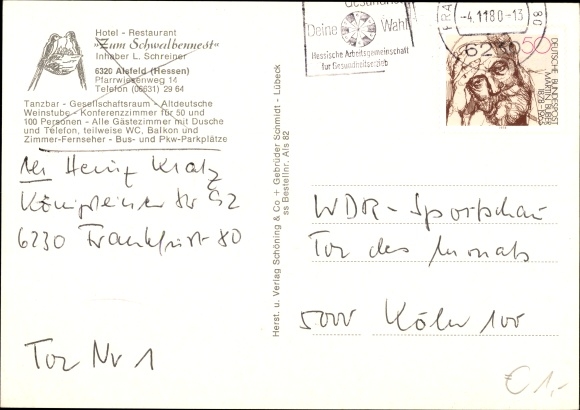 Hotel - Restaurant
"Zum Schwalbennest"
Inhaber L. Schreiner
6320 Alsfeld (Hessen)
Pfarrwiesenweg 14
Telefon (06631) 29 64
Tanzbar - Gesellschaftsraum - Altdeutsche
Weinstube - Konferenzzimmer für 50 und
100 Personen - Alle Gästezimmer mit Dusche
und Telefon, teilweise WC, Balkon und
Zimmer-Fernseher - Bus- und Pkw-Parkplätze
Heinz Kratz
Königsteiner Str 92
6230 Frankfurt 80
Tor Nr 1
Herst. u. Verlag Schöning & Co + Gebrüder Schmidt - Lübeck
ss Bestellnr. Als 82
Gesundheit
Deine Wahl
Hessische Arbeitsgemeinschaft
für Gesundheitserzieh
FRA
-4.11.80-13
80
6230
50
DEUTSCHE BUNDESPOST
MARTIN BUBER
1878 1965
WDR - Sportschau
Tor des Monats
5000 Köln 100
€ 1,-